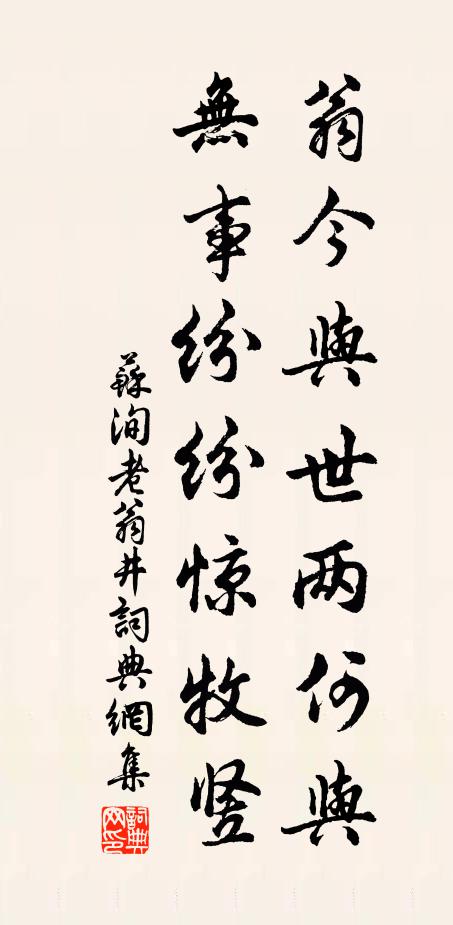 翁今與世两何與
無事紛紛惊牧竖
蘇洵老翁井詞典網集
詞典網印